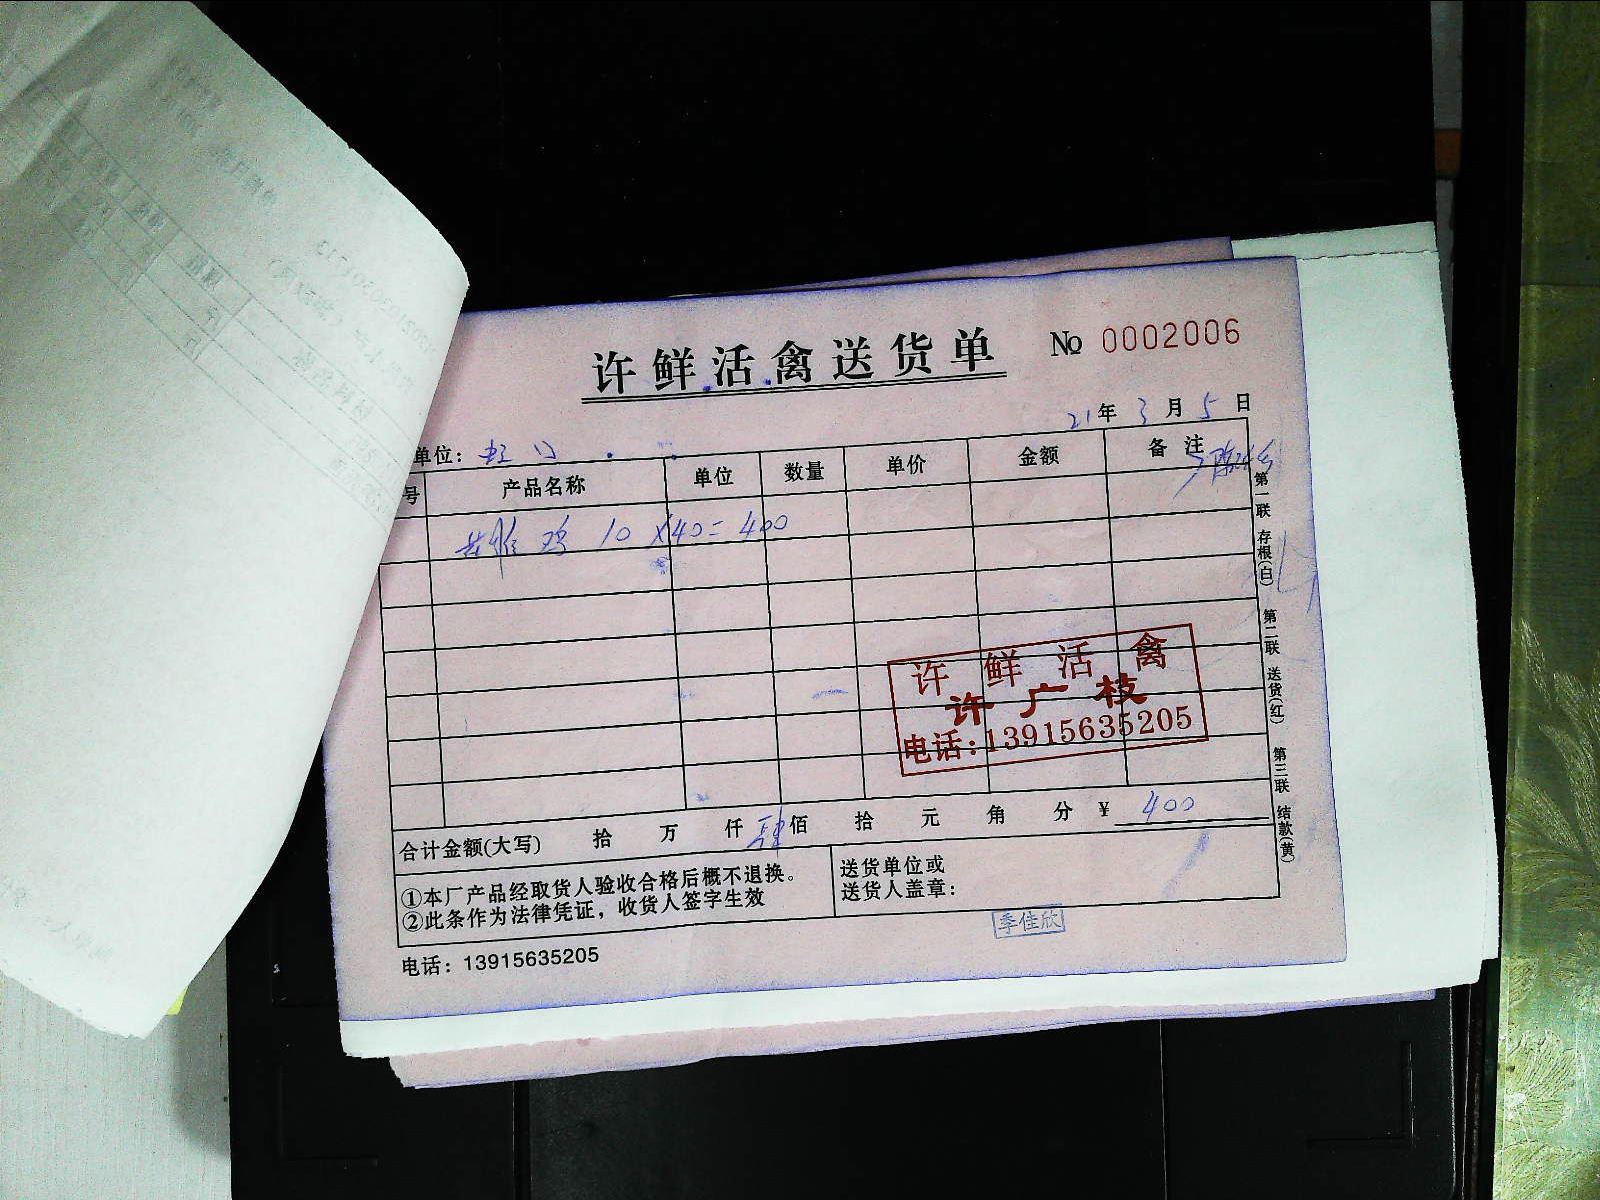 许鲜活禽送货单 № 0002006
21年 3月 5日
单位：虹门
号 产品名称 单位 数量 单价 金额 备注
鸡 10×40=400
第一联 存根(白) 第二联 送货(红) 第三联 结款(黄)
许鲜活禽
许广枝
电话:13915635205
合计金额(大写) 拾 万 仟 肆佰 拾 元 角 分 ¥ 400
①本厂产品经取货人验收合格后概不退换。
②此条作为法律凭证，收货人签字生效
送货单位或
送货人盖章：
季佳欣
电话：13915635205